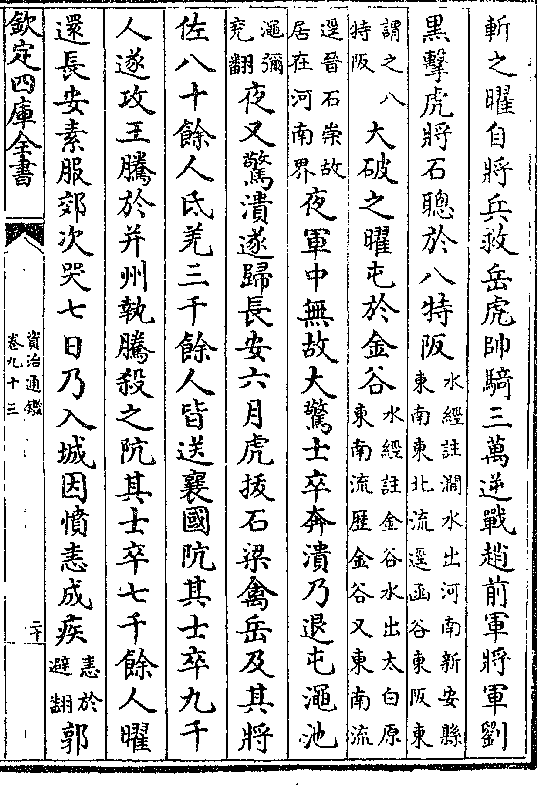 斬之曜自將兵救岳虎帥騎三萬逆戰趙前軍將軍劉
黑擊虎將石聰於八特阪水經註澗水出河南新安縣東南東北流逕函谷東阪東
謂之八特阪大破之曜屯於金谷水經註金谷水出太白原東南流歷金谷又東南流
逕晉石崇故居在河南界夜軍中無故大驚士卒奔潰乃退屯澠池
澠彌兗翻夜又驚潰遂歸長安六月虎拔石梁禽岳及其將
佐八十餘人氐羌三千餘人皆送襄國阬其士卒九千
人遂攻王騰於并州執騰殺之阬其士卒七千餘人曜
還長安素服郊次哭七日乃入城因憤恚成疾恚於避翻郭
欽定四庫全書
資治通鑑
卷九十三
二十